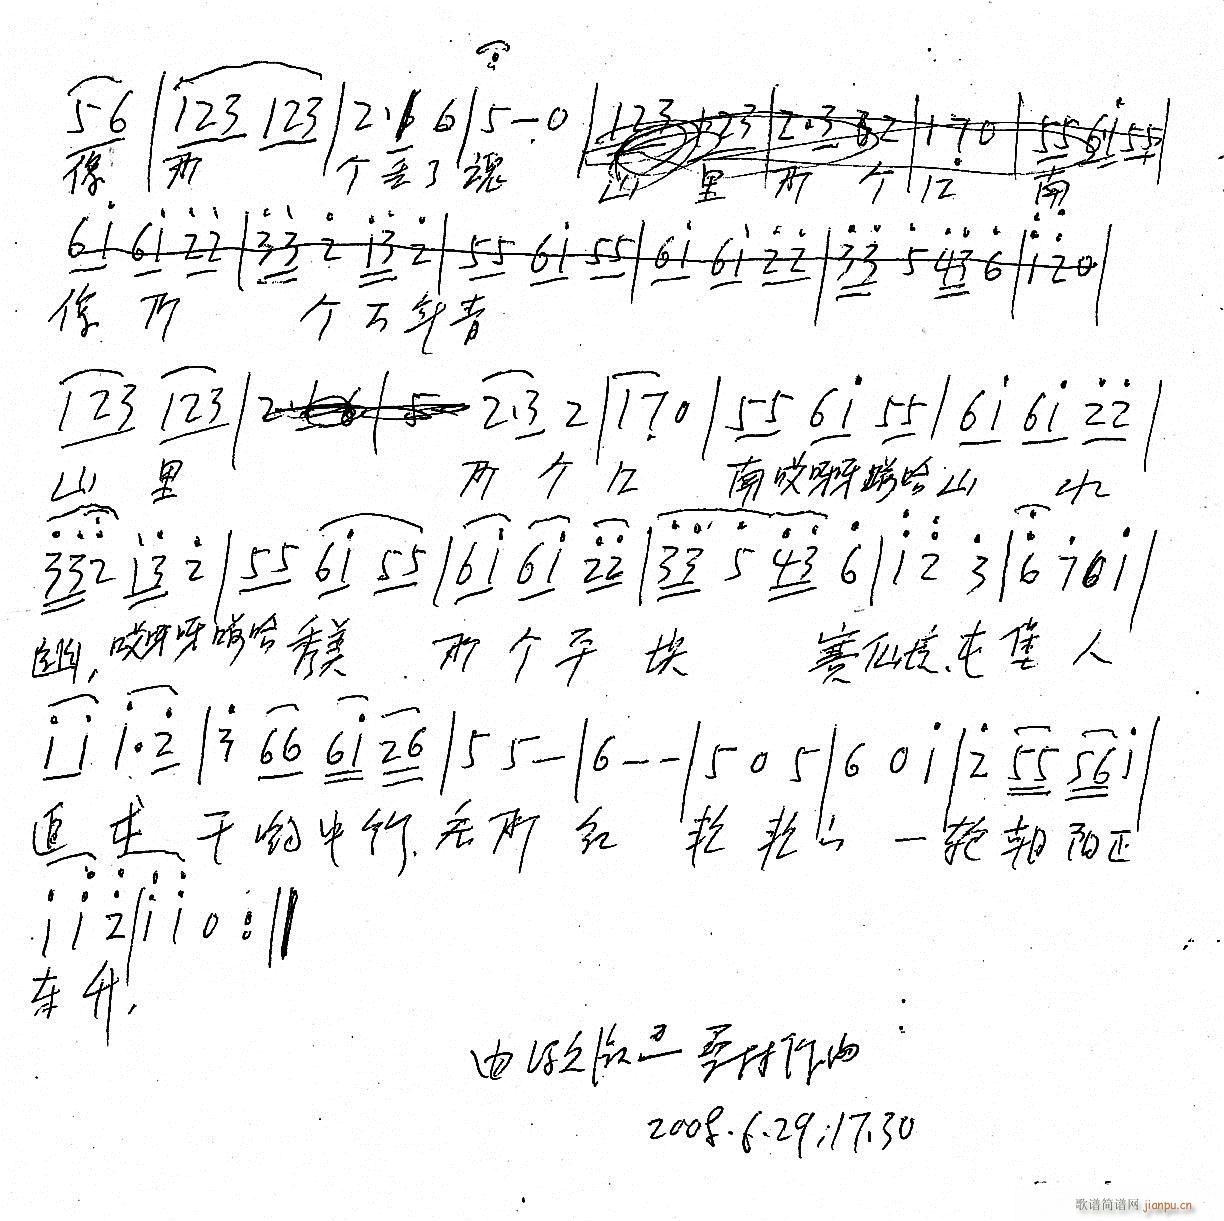 56 | 123 123 | 2·1 6 6 | 5 - 0 | 123 123 | 2·3 32 | 1 7 0 | 55 61 55 |
像 那 个 丢 了 魂 山 里 那 个 江 南
61 61 22 | 33 2 13 2 | 55 61 55 | 61 61 22 | 33 5 43 6 | 1 2 0 |
像 那 个 万年青
123 123 | 2·3 2 | 1 7 0 | 55 61 55 | 61 61 22 |
山 里 那 个 江 南哎呀呀 哈山 水
332 13 2 | 55 61 55 | 61 61 22 | 33 5 43 6 | 1 2 3 | 6 7 6 1 |
哎呀呀 哈 秀美 那 个 平 坝 赛仙境,屯 堡 人
11 1·2 | 3 66 61 26 | 5 5 - | 6 - - | 5 0 5 | 6 0 1 | 2 55 56 1 |
追 求 中 那 红 一 轮 朝 阳正
1 1 2 | 1 1 0 :||
东 升,
作曲
2008.6.29.17.30
歌谱简谱网 jianpu.cn